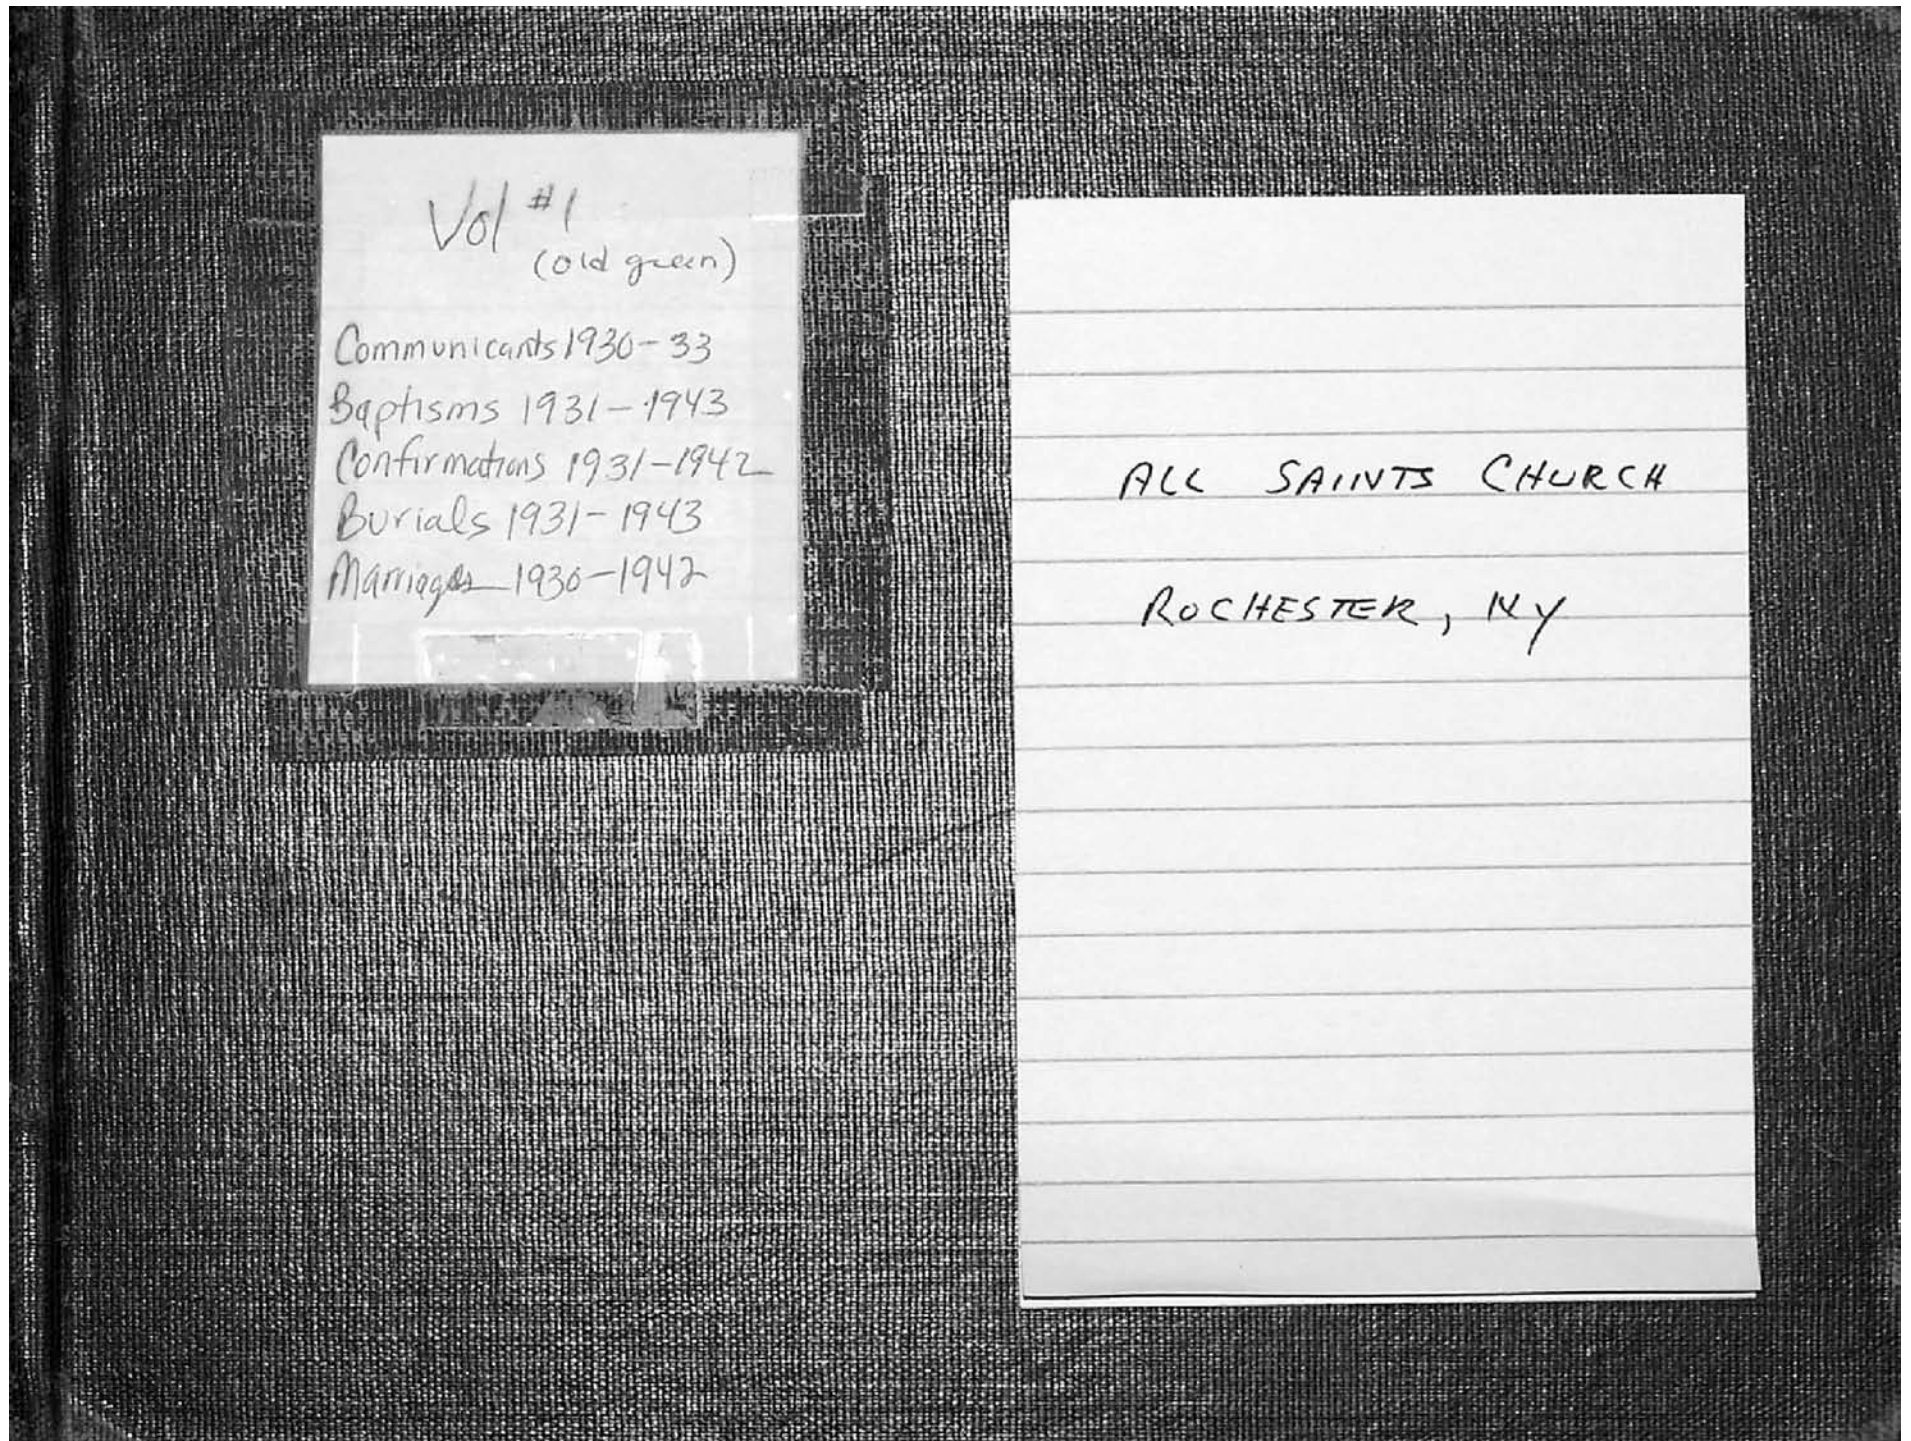 Vol #1
(old green)
Communicants 1930-33
Baptisms 1931-1943
Confirmations 1931-1942
Burials 1931-1943
Marriages 1930-1942
ALL SAINTS CHURCH
ROCHESTER, NY